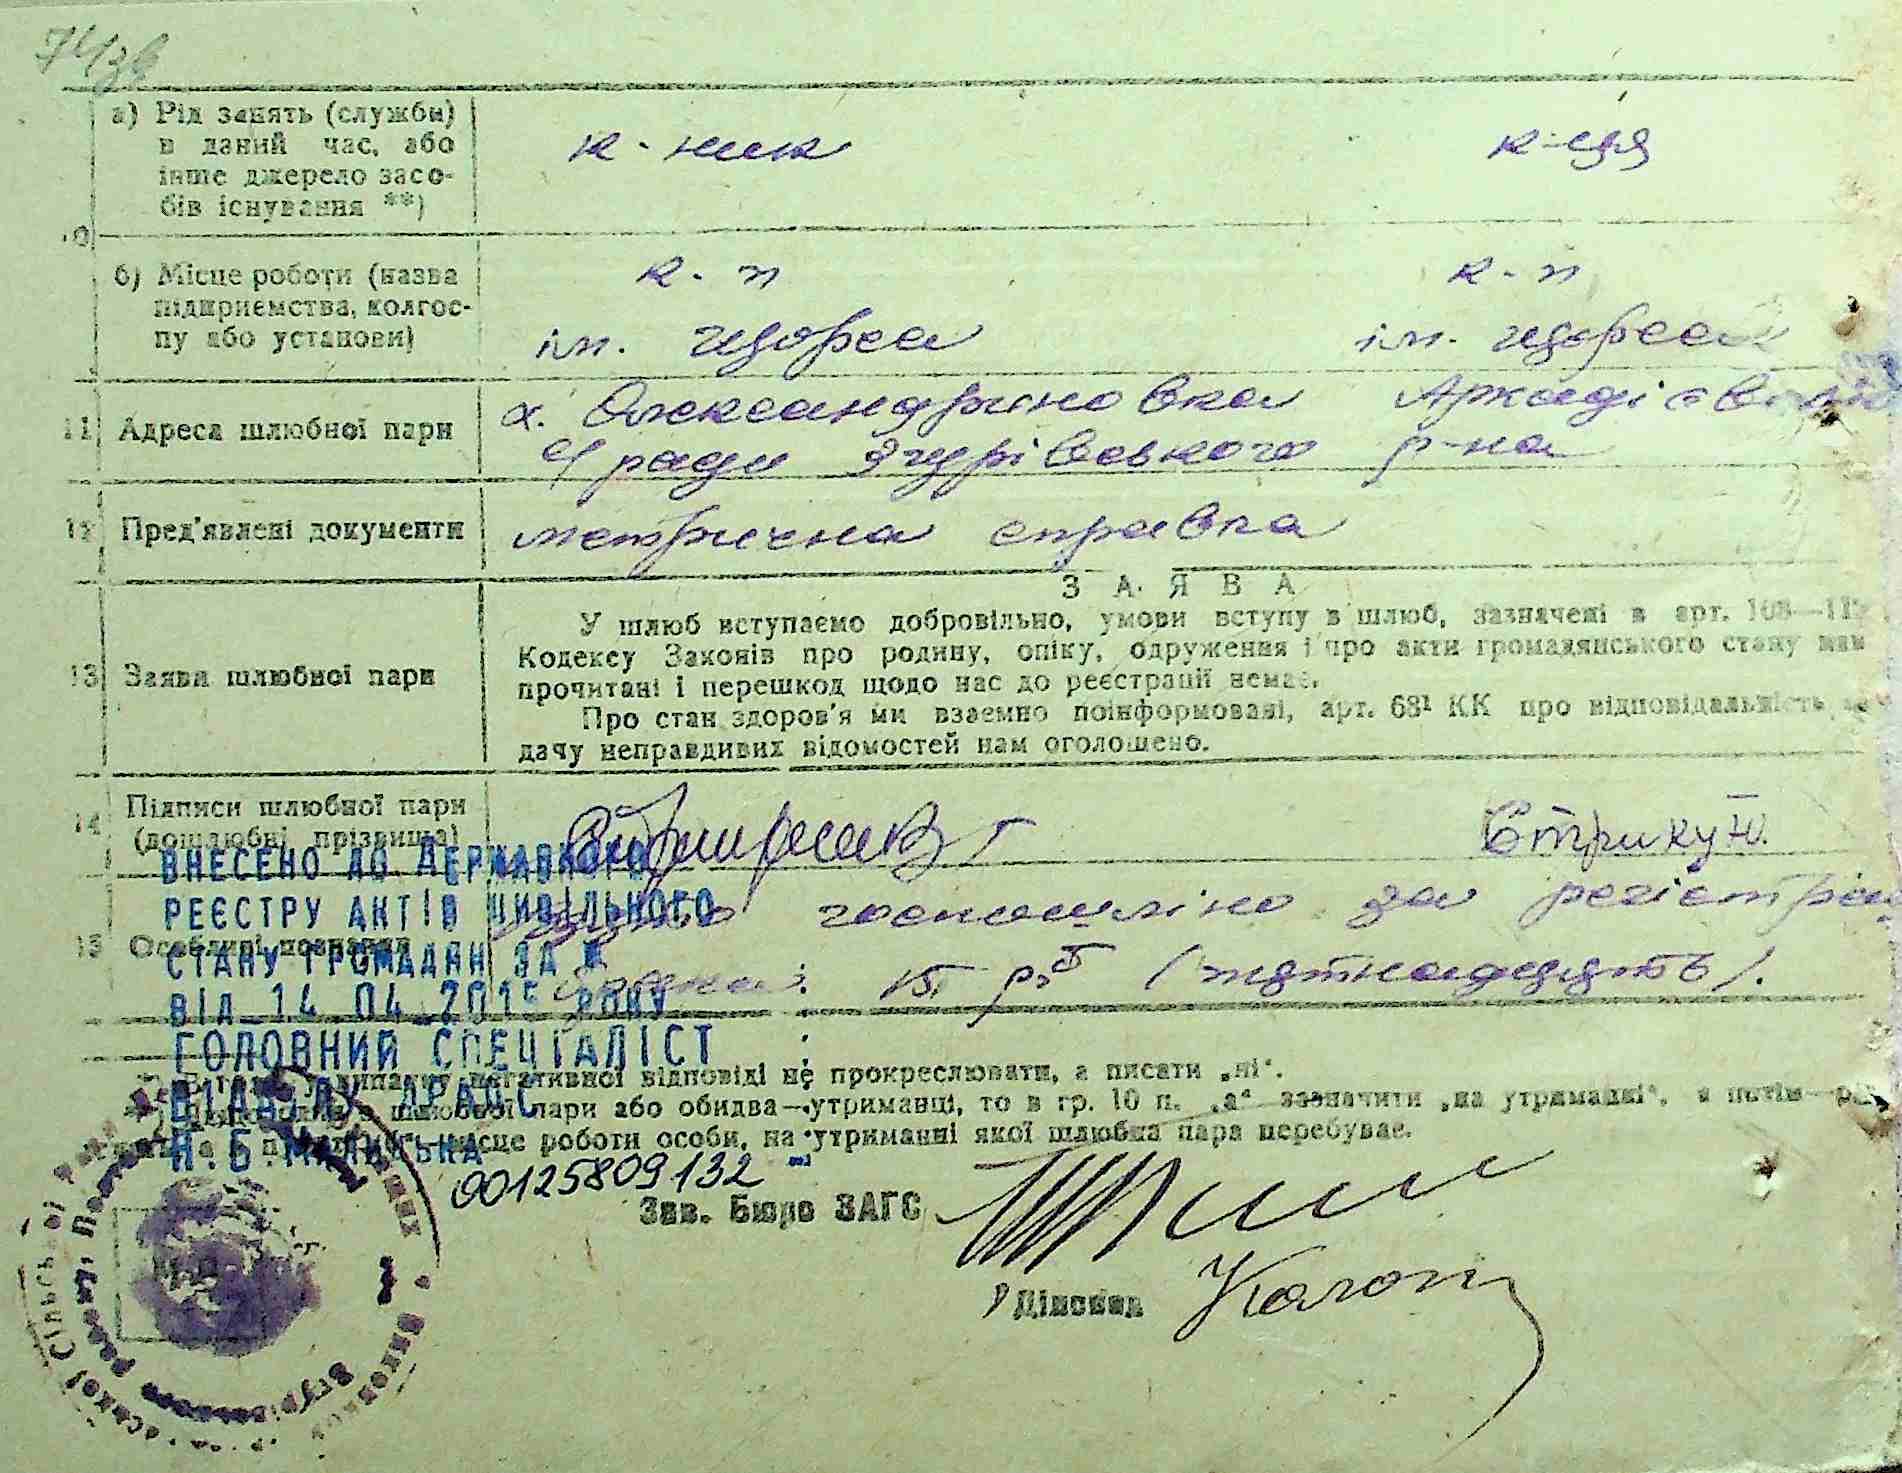 74/зв
а) Рід занять (служби)
в даний час, або
інше джерело засо-
бів існування **)
к-ник к-ця
б) Місце роботи (назва
підприємства, колгос-
пу або установи)
к-п к-п
ім. щорса ім. щорса
11 Адреса шлюбної пари
х. Олександриновка Аркадієвської
с/ради Згурівського р-на
12 Пред'явлені документи метрична справка
ЗАЯВА
13 Заява шлюбної пари
У шлюб вступаємо добровільно, умови вступу в шлюб, зазначені в арт.
Кодексу Законів про родину, опіку, одруження і про акти громадянського стану нам
прочитані і перешкод щодо нас до реєстрації немає.
Про стан здоров'я ми взаємно поінформовані, арт. 68¹ КК про відповідальність за
дачу неправдивих відомостей нам оголошено.
14 Підписи шлюбної пари
(дошлюбні прізвища)
Стрику Ю.
15 Особливі познаки
госпошліно за регістрац
15 р. (пятнадцять).
ВНЕСЕНО ДО ДЕРЖАВНОГО
РЕЄСТРУ АКТІВ ЦИВІЛЬНОГО
СТАНУ ГРОМАДЯН ЗА №
ВІД 14 04 2015 РОКУ
ГОЛОВНИЙ СПЕЦІАЛІСТ
ВІДДІЛУ ДРАЦС
негативної відповіді не прокреслювати, а писати „ні".
шлюбної пари або обидва—утриманці, то в гр. 10 п. „а" зазначити „на утриманні", а потім
місце роботи особи, на утриманні якої шлюбна пара перебуває.
00125809132
Зав. Бюро ЗАГС
Діловод